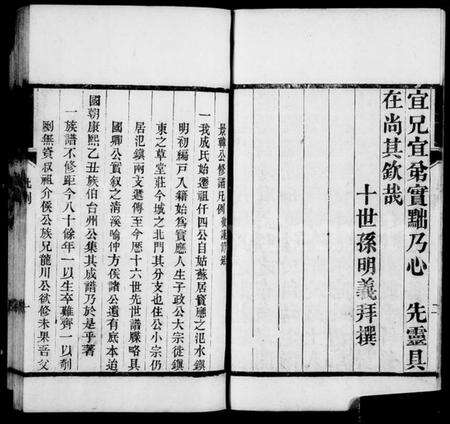 宜兄宜弟實黜乃心 先靈具
在尚其欽哉
十世孫明義拜撰
景韓公修譜凡例
一我成氏始遷祖仟四公自姑蘇居寶應之氾水鎭
明初編戶入籍始爲寶應人生子政公大宗徙鎭
東之草堂莊今城之北門其分支也住公小宗仍
居氾鎭兩支遞傳至今歷十六世先世譜牒略具
國卿公實叙之淸溪喻仲方侯諸公還有底本迨
國朝康熙乙丑族伯台州公集其成譜乃於是乎著
一族譜不修距今八十餘年一以生卒難齊一以剞
劂無貲叔祖介侯公族兄龍川公欲修未果吾父
凡例